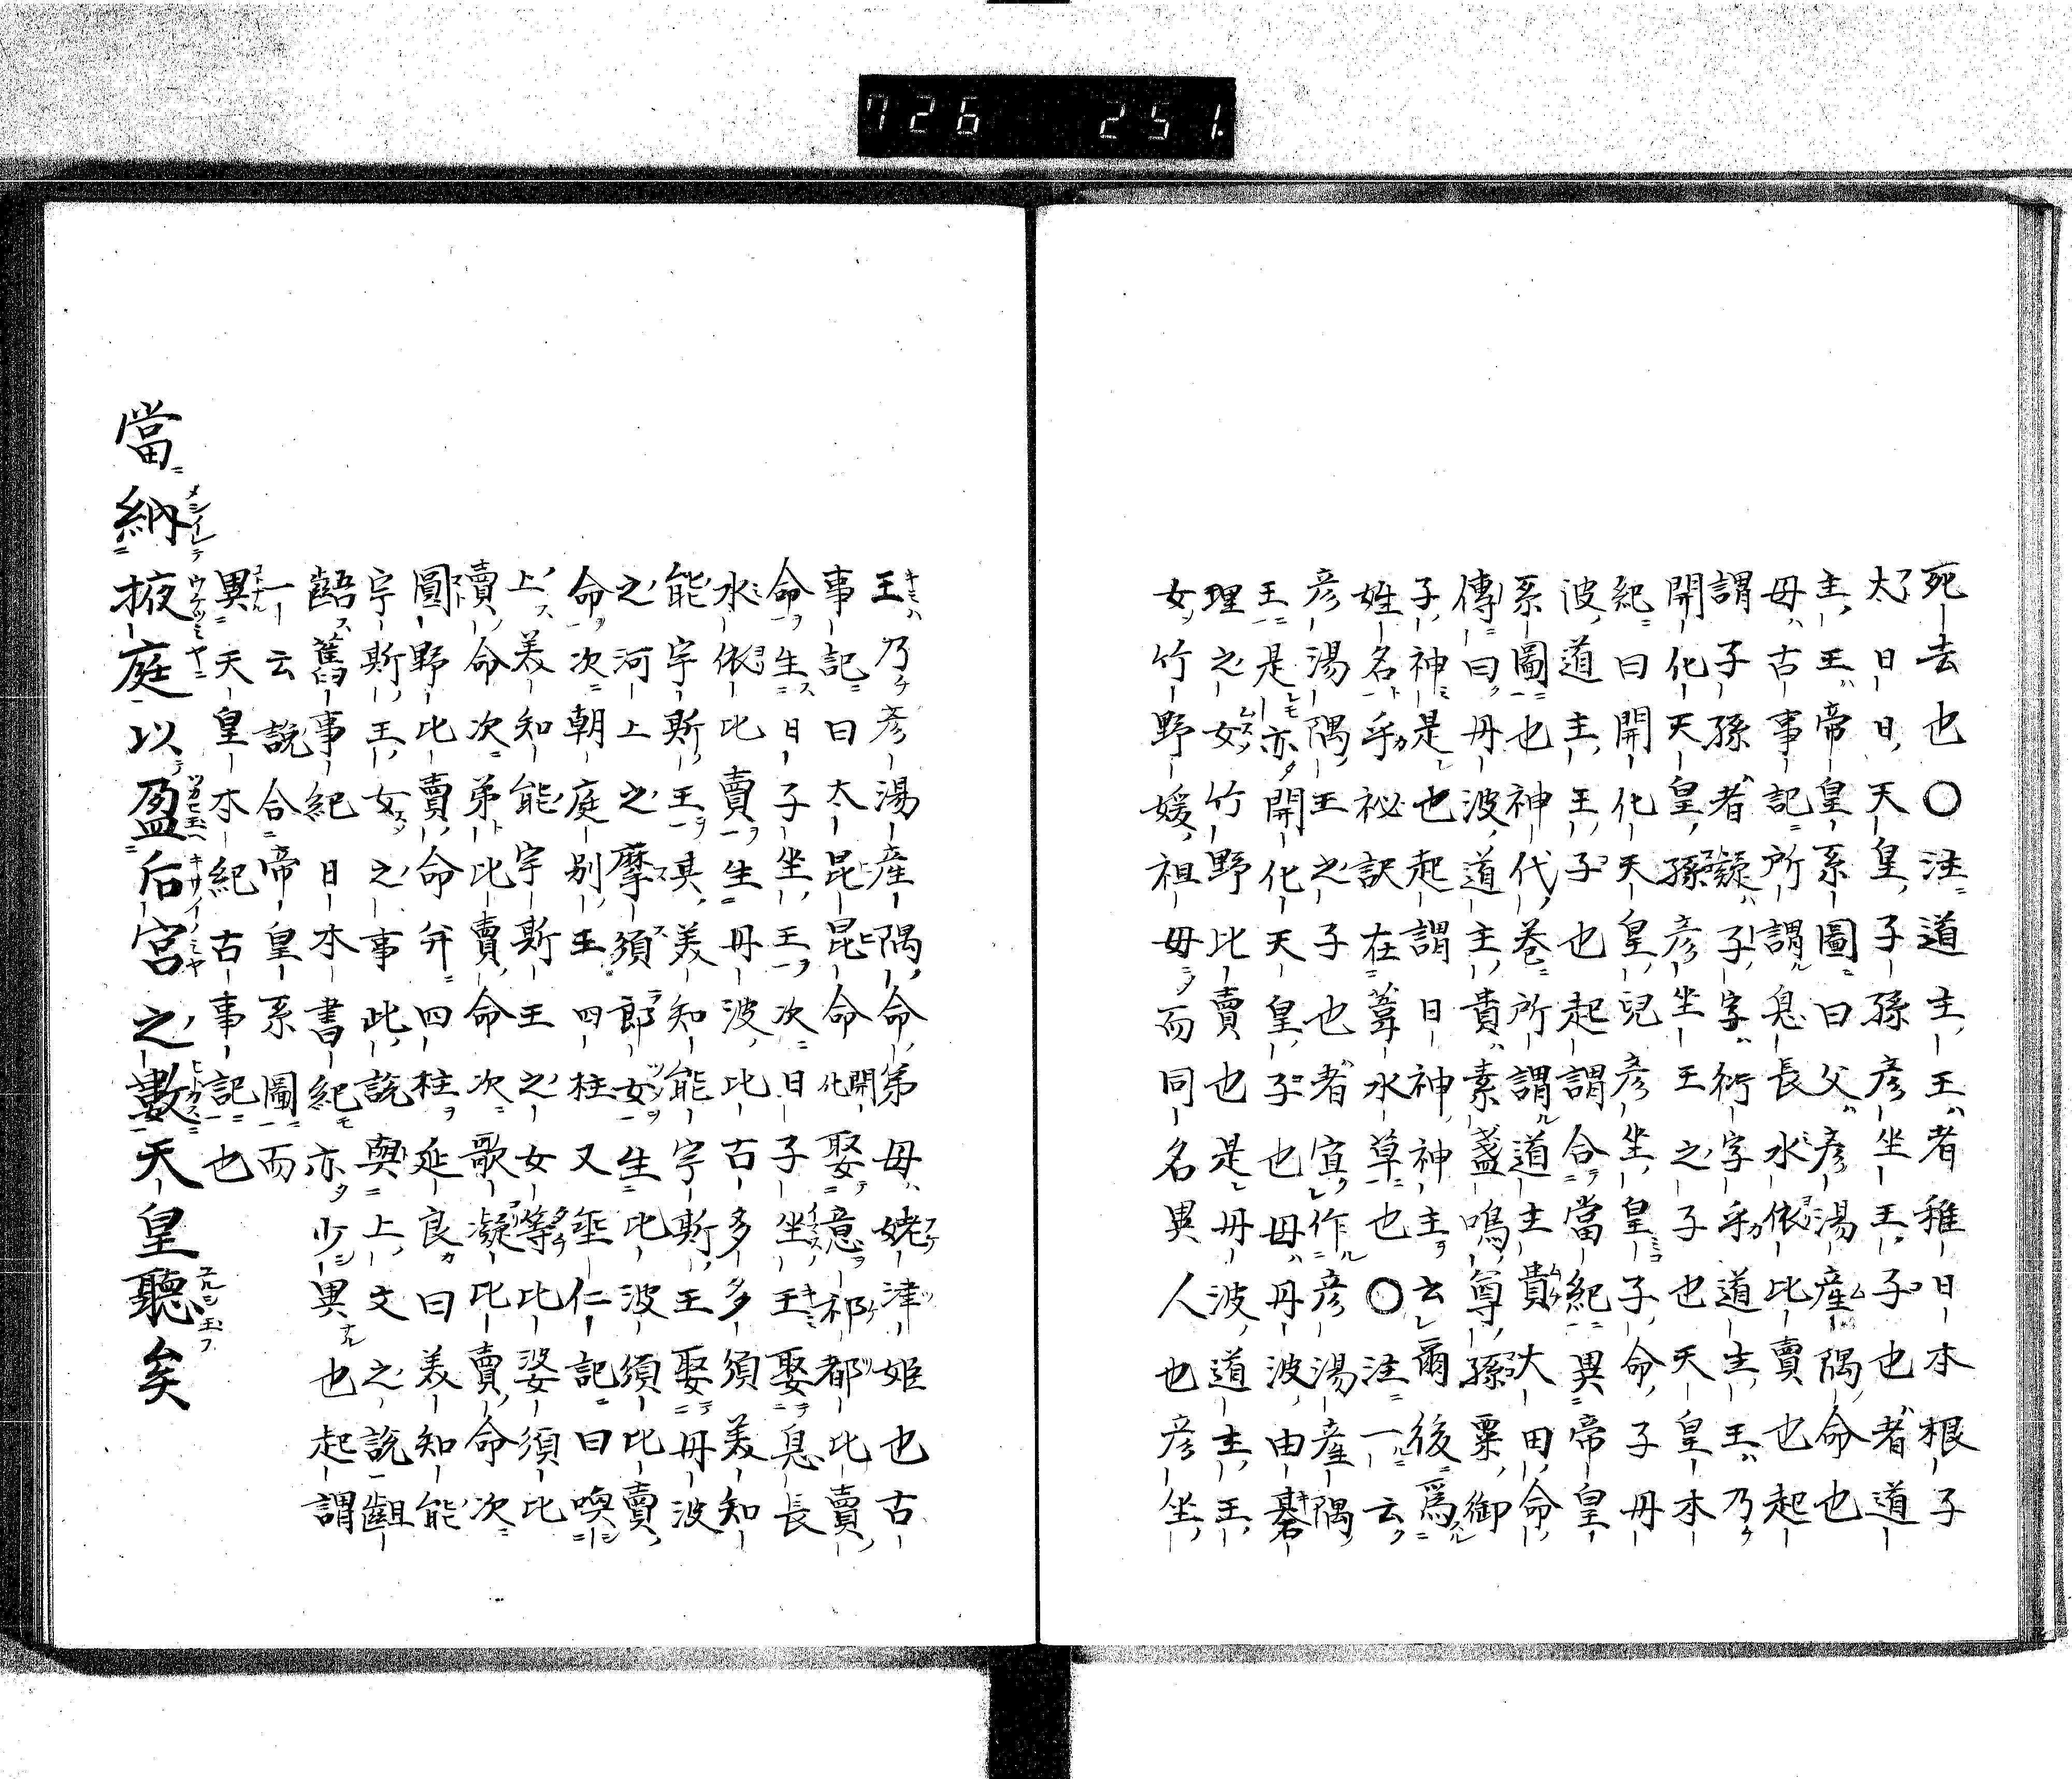 726 251.
死去也〇注道主王者稚日本根子
太日日天皇子孫彦坐王子也者道
主王帝皇系圖曰父彦湯産隅命也
母古事記所謂息長水依比賣也起
謂子孫者疑子字衍字乎道主王乃
開化天皇孫彦坐王之子也天皇本
紀曰開化天皇兒彦坐皇子命子丹
波道主王子也起謂合當紀異帝皇
系圖也神代巻所謂道主貴大田命
傳曰丹波道主貴素盞鳴尊孫粟御
子神是也起謂日神神主云爾後爲
姓名乎祕訣在葦水草也〇注一云
彦湯隅王之子也者宜作彦湯産隅
王是亦開化天皇子也母丹波由碁
理之女竹野比賣也是丹波道主王
女竹野媛祖母而同名異人也彦坐
王乃彦湯産隅命弟母姥津姫也古
事記曰太昆昆命開化娶意祁都比賣
命生日子坐王次日子坐王娶息長
水依比賣生丹波比古多多須美知
能宇斯王其美知能宇斯王娶丹波
之河上之摩須郎女生比波須比賣
命次朝庭別王四柱又垂仁記曰喚
上美知能宇斯王之女等比婆須比
賣命次弟比賣命次歌凝比賣命次
圓野比賣命并四柱延良曰美知能
宇斯王女之事此説與上文之説齟
齬舊事紀日本書紀亦少異也起謂
一云説合帝皇系圖而
異天皇本紀古事記也
當納掖庭以盈后宮之數天皇聽矣